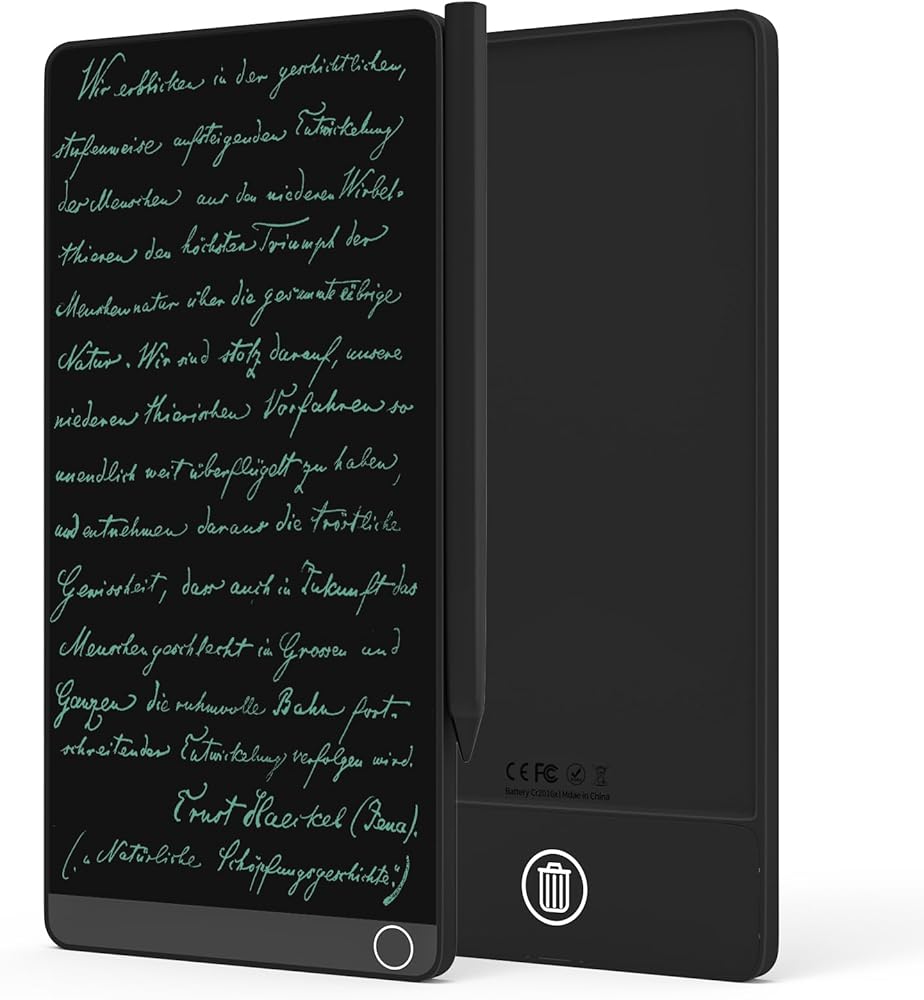 Wir erblicken in der geschichtlichen,
stufenweise aufsteigenden Entwickelung
der Menschen aus den niederen Wirbel-
thieren den höchsten Triumph der
Menschennatur über die gesammte übrige
Natur. Wir sind stolz darauf, unsere
niederen thierischen Vorfahren so
unendlich weit überflügelt zu haben,
und entnehmen daraus die tröstliche
Gewissheit, dass auch in Zukunft das
Menschengeschlecht im Grossen und
Ganzen die ruhmvolle Bahn fort-
schreitender Entwickelung verfolgen wird.
Ernst Haeckel (Jena).
(„Natürliche Schöpfungsgeschichte“)
CE FC
Battery Cr2016x1 Mdae in China